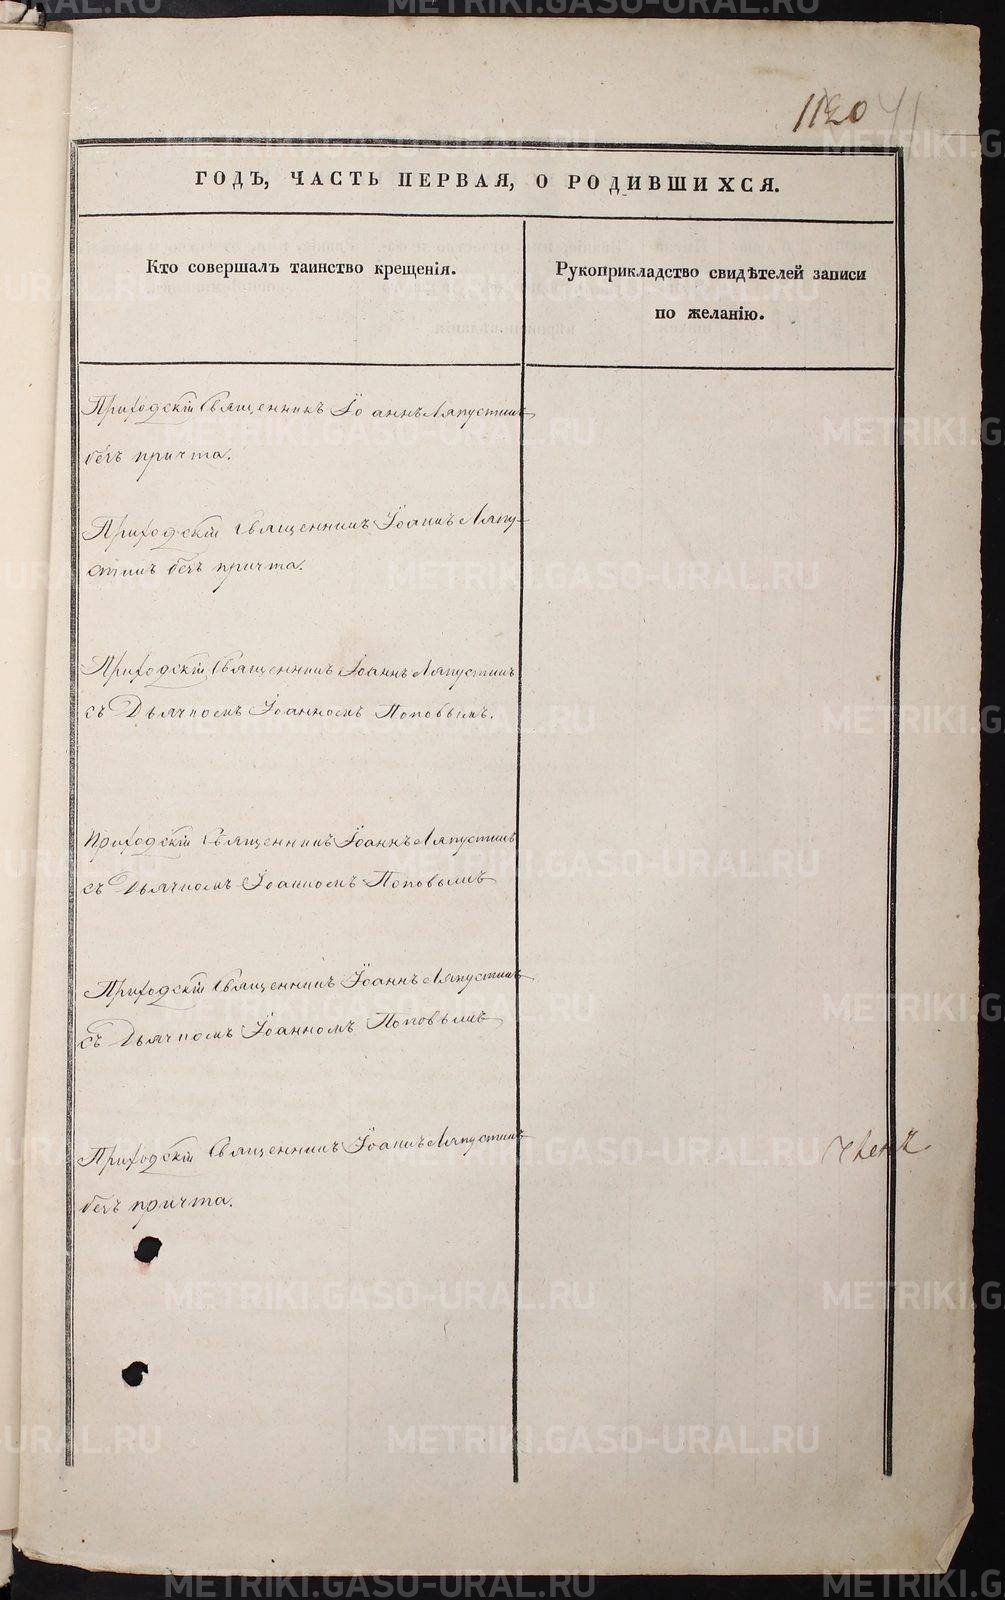 1120 41
ГОДЪ, ЧАСТЬ ПЕРВАЯ, О РОДИВШИХСЯ.
Кто совершалъ таинство крещенія.
Рукоприкладство свидѣтелей записи
по желанію.
Приходскій Священникъ Іоаннъ Ляпустинъ
безъ причта.
Приходскій Священникъ Іоаннъ Ляпу-
стинъ безъ причта.
Приходскій Священникъ Іоаннъ Ляпустинъ
съ Дьячкомъ Іоанномъ Поповымъ.
Приходскій Священникъ Іоаннъ Ляпустинъ
съ Дьячкомъ Іоанномъ Поповымъ
Приходскій Священникъ Іоаннъ Ляпустинъ
съ Дьячкомъ Іоанномъ Поповымъ
Приходскій Священникъ Іоаннъ Ляпустинъ
безъ причта.
METRIKI.GASO-URAL.RU